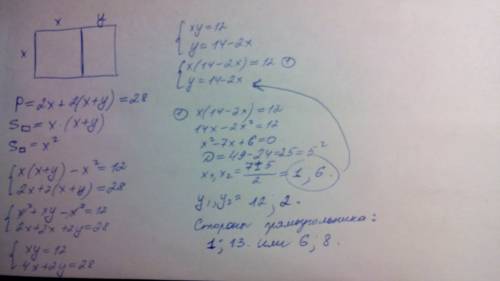 x y
x
P = 2x + 2(x+y) = 28
S▭ = x · (x+y)
S□ = x²
{ x(x+y) - x² = 12
2x + 2(x+y) = 28
{ x² + xy - x² = 12
2x + 2x + 2y = 28
{ xy = 12
4x + 2y = 28
{ xy = 12
y = 14 - 2x
{ x(14 - 2x) = 12 ①
y = 14 - 2x
① x(14 - 2x) = 12
14x - 2x² = 12
x² - 7x + 6 = 0
D = 49 - 24 = 25 = 5²
x₁, x₂ = (7±5)/2 = 1, 6.
y₁, y₂ = 12; 2.
Стороны прямоугольника:
1; 13. или 6; 8.